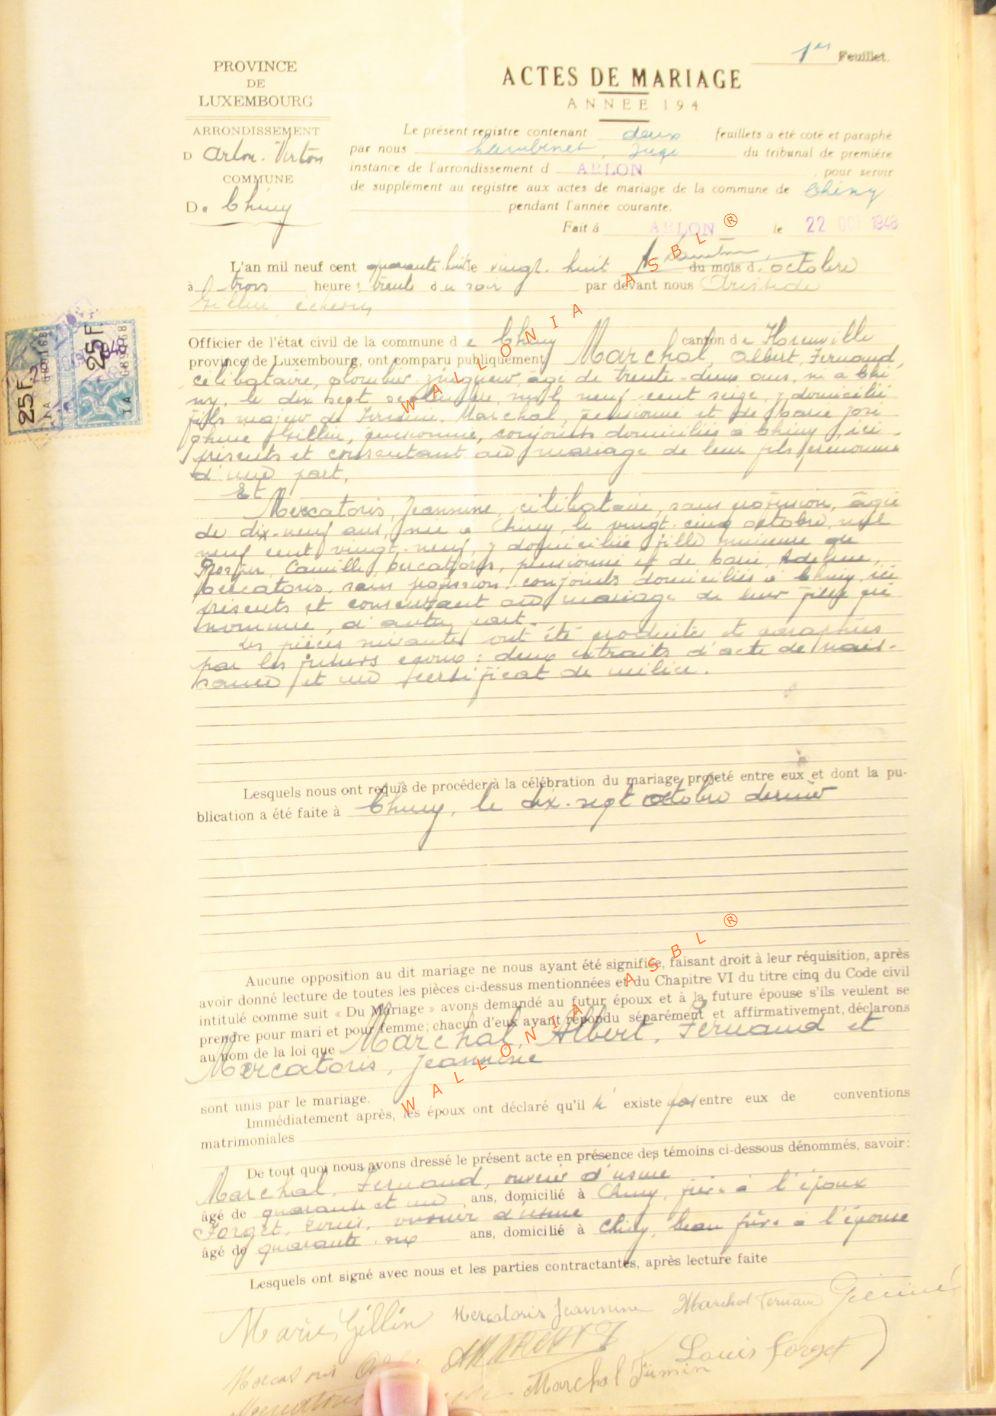 1er Feuillet.
PROVINCE
DE
LUXEMBOURG
ACTES DE MARIAGE
ANNÉE 194
ARRONDISSEMENT
D Arlon-Virton
COMMUNE
De Chiny
Le présent registre contenant deux feuillets a été coté et paraphé
par nous Lambinet, Juge du tribunal de première
instance de l'arrondissement d ARLON pour servir
de supplément au registre aux actes de mariage de la commune de Chiny
pendant l'année courante.
Fait à ARLON le 22 OCT 1948
L'an mil neuf cent quarante huit le vingt-huit du mois d'octobre
à trois heures trente du soir par devant nous Aristide
Gillin, échevin
Officier de l'état civil de la commune de Chiny canton de Florenville
province de Luxembourg, ont comparu publiquement Marchal, Albert, Fernand,
célibataire, plombier zingueur âgé de trente-deux ans, né à Chi-
ny, le dix sept septembre mil neuf cent seize, y domicilié
fils majeur de Firmin Marchal, pensionné et de dame José-
phine Gillin, pensionnée, conjoints domiciliés à Chiny, ici
présents et consentant au mariage de leur fils prénommé
d'une part,
Et
Mercatoris, Jeannine, célibataire, sans profession, âgée
de dix-neuf ans, née à Chiny le vingt-cinq octobre mil
neuf cent vingt-neuf, y domiciliée fille mineure de
Camille Mercatoris, pensionné et de dame Adeline,
Mercatoris, sans profession, conjoints domiciliés à Chiny, ici
présents et consentant au mariage de leur fille pré
nommée, d'autre part.
Les pièces suivantes ont été produites et paraphées
par les futurs époux : deux extraits d'acte de nais-
sance et un certificat de milice.
Lesquels nous ont requis de procéder à la célébration du mariage projeté entre eux et dont la pu-
blication a été faite à Chiny, le dix-sept octobre dernier
Aucune opposition au dit mariage ne nous ayant été signifiée, faisant droit à leur réquisition, après
avoir donné lecture de toutes les pièces ci-dessus mentionnées et du Chapitre VI du titre cinq du Code civil
intitulé comme suit « Du Mariage » avons demandé au futur époux et à la future épouse s'ils veulent se
prendre pour mari et pour femme; chacun d'eux ayant répondu séparément et affirmativement, déclarons
au nom de la loi que Marchal, Albert, Fernand et
Mercatoris, Jeannine
sont unis par le mariage.
Immédiatement après, les époux ont déclaré qu'il n' existe pas entre eux de conventions
matrimoniales
De tout quoi nous avons dressé le présent acte en présence des témoins ci-dessous dénommés, savoir:
Marchal, Fernand, ouvrier d'usine
âgé de quarante et un ans, domicilié à Chiny, frère à l'époux
Forget, Louis, ouvrier d'usine
âgé de quarante six ans, domicilié à Chiny, beau frère à l'épouse
Lesquels ont signé avec nous et les parties contractantes, après lecture faite
Marie Gillin Mercatoris Jeannine Marchal Fernand
Marchal Firmin Louis Forget
25 F
25 F
WALLONIA ASBL ®
WALLONIA ASBL ®